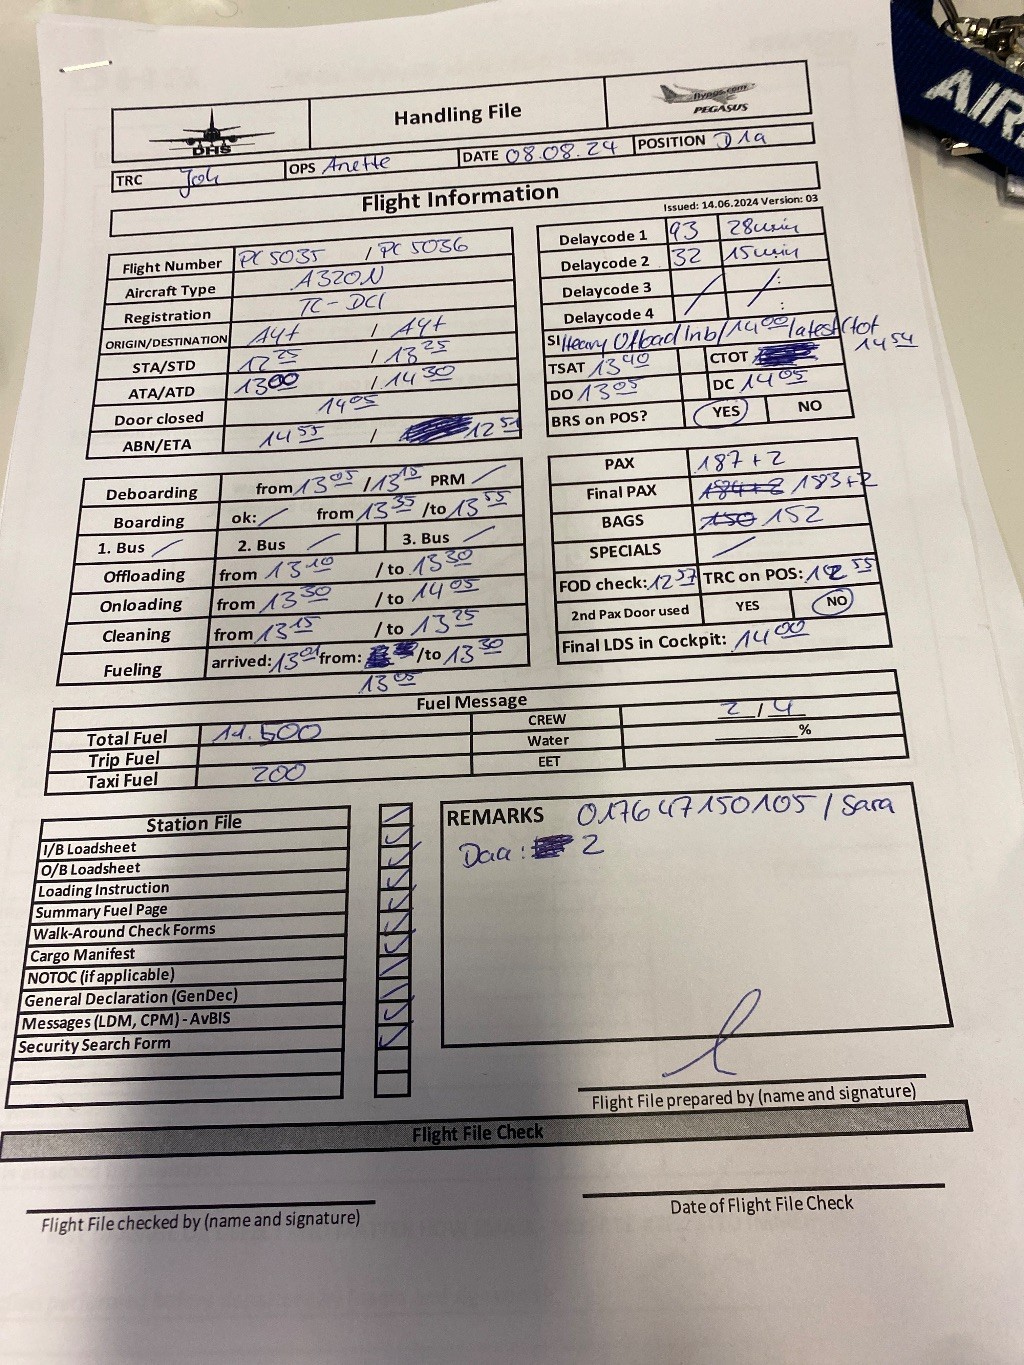 DHS
Handling File
flypgs.com
PEGASUS
AIR
TRC Joh OPS Anette DATE 08.08.24 POSITION D1a
Flight Information
Issued: 14.06.2024 Version: 03
Flight Number PC 5035 / PC 5036
Aircraft Type A320N
Registration TC-DCI
ORIGIN/DESTINATION AYT / AYT
STA/STD 12 25 / 13 25
ATA/ATD 13 00 / 14 30
Door closed 14 05
ABN/ETA 14 55 / 12 51
Delaycode 1 93 28min
Delaycode 2 32 15min
Delaycode 3 / :
Delaycode 4 / :
SI Heavy Offload Inb/14 00/latest Ctot
14 54
TSAT 13 40 CTOT
DO 13 05 DC 14 05
BRS on POS? YES NO
Deboarding from 13 05 / 13 15 PRM /
Boarding ok: / from 13 35 /to 13 55
1. Bus / 2. Bus / 3. Bus /
Offloading from 13 10 / to 13 30
Onloading from 13 30 / to 14 05
Cleaning from 13 15 / to 13 25
Fueling arrived: 13 01 from: /to 13 30
13 05
PAX 187+2
Final PAX 184+2 183+2
BAGS 150 152
SPECIALS /
FOD check: 12 57 TRC on POS: 12 55
2nd Pax Door used YES NO
Final LDS in Cockpit: 14 00
Fuel Message
Total Fuel 11.500
Trip Fuel
Taxi Fuel 200
CREW 2 / 4
Water %
EET
Station File
I/B Loadsheet
O/B Loadsheet
Loading Instruction
Summary Fuel Page
Walk-Around Check Forms
Cargo Manifest
NOTOC (if applicable)
General Declaration (GenDec)
Messages (LDM, CPM) - AvBIS
Security Search Form
REMARKS 017647150105 / Sara
Daa: 2
Flight File prepared by (name and signature)
Flight File Check
Flight File checked by (name and signature)
Date of Flight File Check